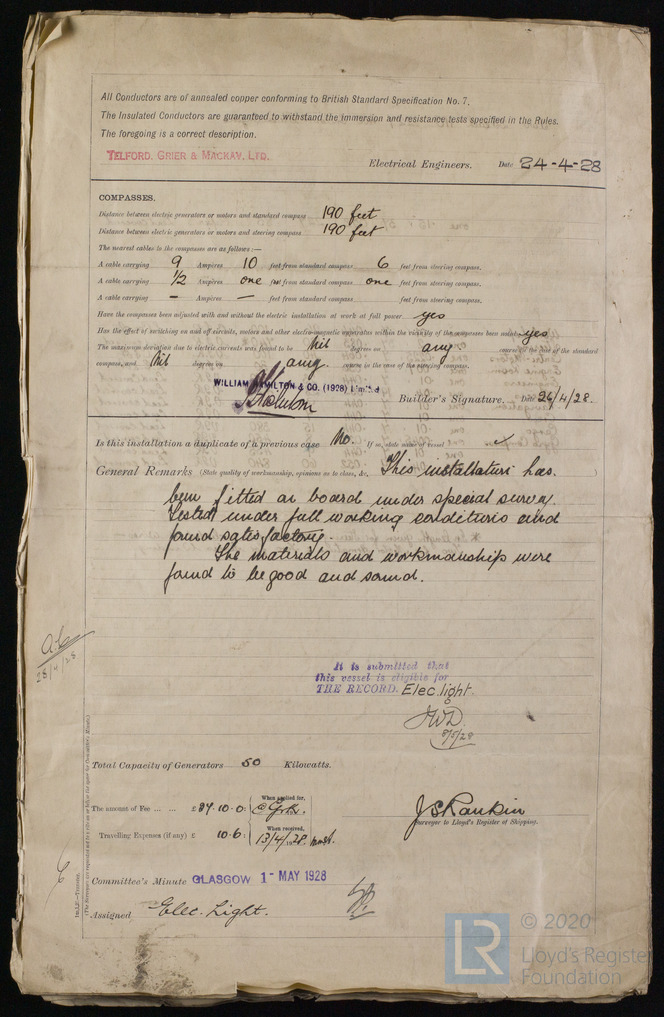 All Conductors are of annealed copper conforming to British Standard Specification No. 7.
The Insulated Conductors are guaranteed to withstand the immersion and resistance tests specified in the Rules.
The foregoing is a correct description.
TELFORD, GRIER & MACKAY, LTD. Electrical Engineers. Date 24-4-28
COMPASSES.
Distance between electric generators or motors and standard compass 190 feet
Distance between electric generators or motors and steering compass 190 feet
The nearest cables to the compasses are as follows:—
A cable carrying 9 Ampères 10 feet from standard compass 6 feet from steering compass.
A cable carrying 1/2 Ampères one feet from standard compass one feet from steering compass.
A cable carrying – Ampères – feet from standard compass feet from steering compass.
Have the compasses been adjusted with and without the electric installation at work at full power yes
Has the effect of switching on and off circuits, motors and other electro-magnetic apparatus within the vicinity of the compasses been noted yes
The maximum deviation due to electric currents was found to be Nil degrees on any course in the case of the standard
compass, and Nil degrees on any course in the case of the steering compass.
WILLIAM HAMILTON & CO. (1928) Limited
Builder's Signature. Date 26/4/28.
Is this installation a duplicate of a previous case No. If so, state name of vessel ✓
General Remarks (State quality of workmanship, opinions as to class, &c. This installation has
been fitted on board under special survey
tested under full working conditions and
found satisfactory.
The materials and workmanship were
found to be good and sound.
28/4/28
It is submitted that
this vessel is eligible for
THE RECORD. Elec. light.
JWD.
8/5/28
Total Capacity of Generators 50 Kilowatts.
The amount of Fee ... ... £ 37.10.0 When applied for,
Travelling Expenses (if any) £ 10.6 When received,
13/4/1928
JS Rankin
Surveyor to Lloyd's Register of Shipping.
Committee's Minute GLASGOW 1 - MAY 1928
Assigned Elec. Light.
© 2020
LR
Lloyd's Register
Foundation